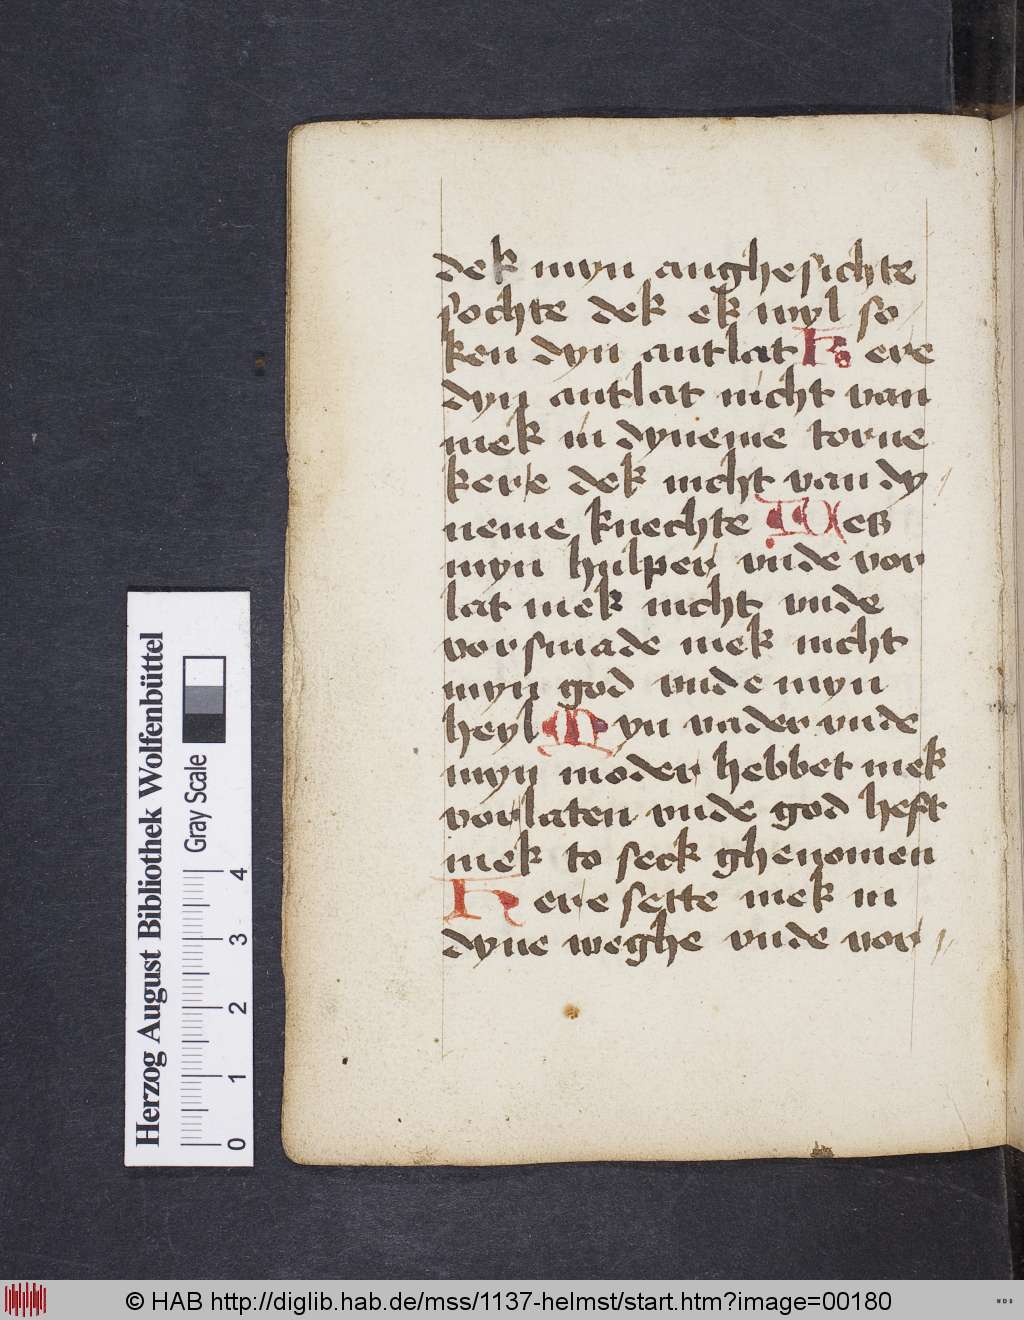 dek myn anghesichte
sochte dek ek wyl so
ken dyn antlat Here
dyn antlat nicht van
mek in dyneme torne
kere dek nicht van dy
neme knechte Wes
myn hulper vnde vor
lat mek nicht vnde
vorsmade mek nicht
myn god vnde myn
heyl Myn vader vnde
myn moder hebbet mek
vorlaten vnde god heft
mek to seck ghenomen
Here sette mek in
dyne weghe vnde vor
Herzog August Bibliothek Wolfenbüttel
Gray Scale
0 1 2 3 4
© HAB http://diglib.hab.de/mss/1137-helmst/start.htm?image=00180